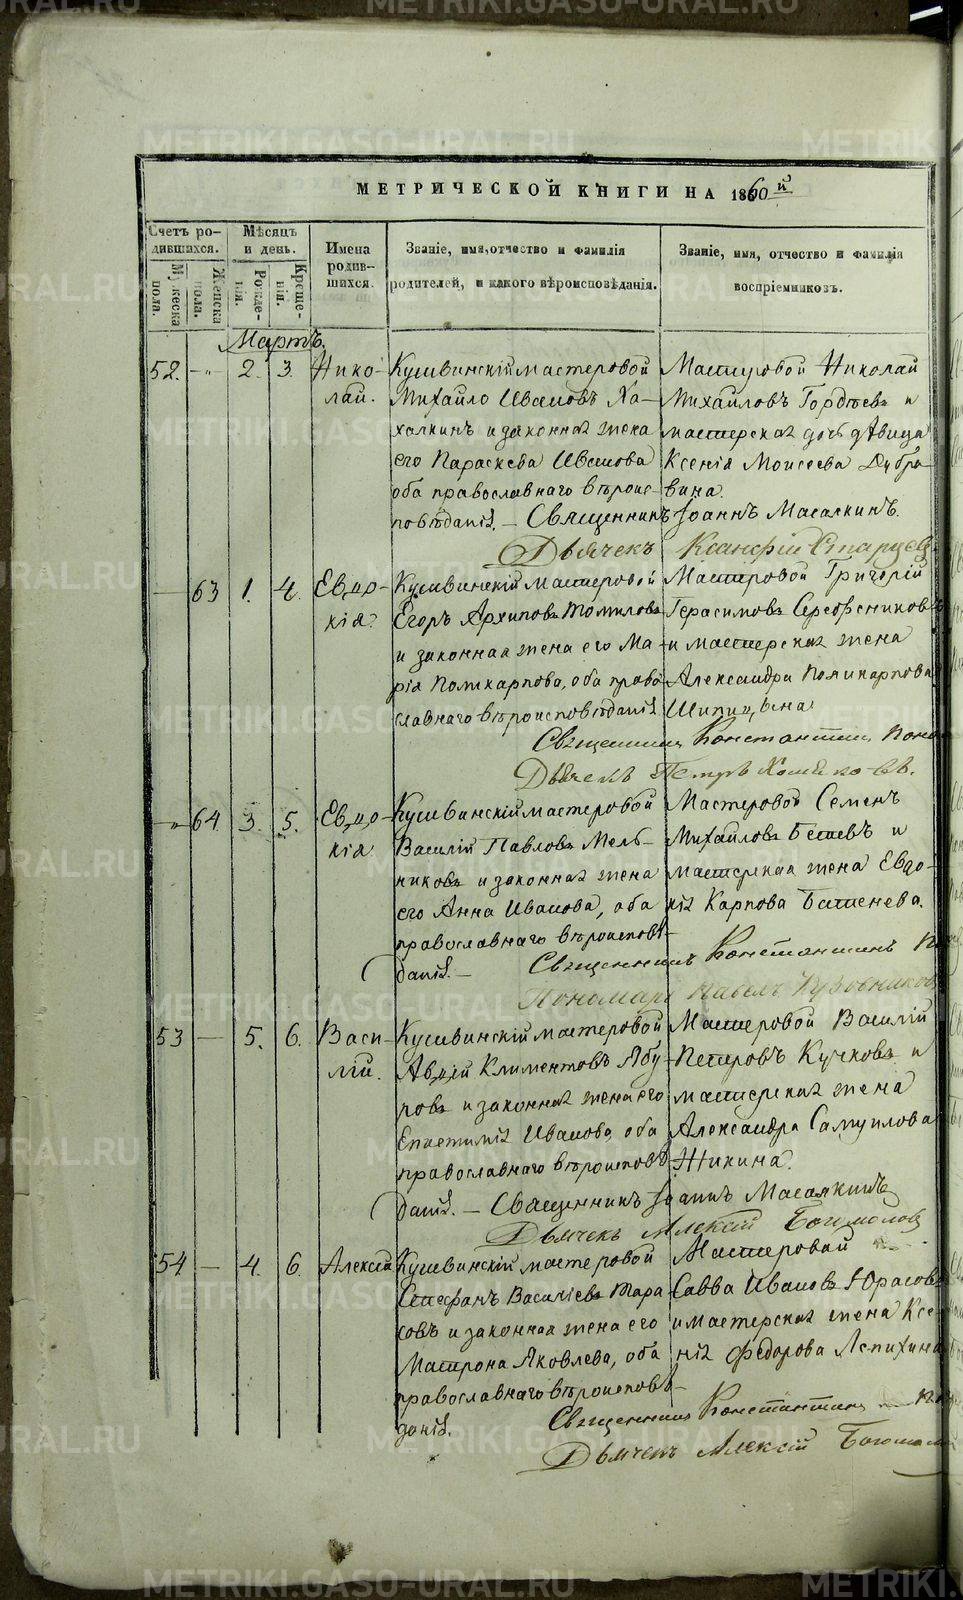 МЕТРИЧЕСКОЙ КНИГИ НА 1860й
Счетъ родившихся.
Мужеска пола.
Женска пола.
Мѣсяцъ и день.
Рожденія.
Крещенія.
Имена родившихся.
Званіе, имя, отчество и фамилія родителей, и какого вѣроисповѣданія.
Званіе, имя, отчество и фамилія воспріемниковъ.
Мартъ.
52. -"- 2. 3. Нико-
лай.
Кушвинскій мастеровой
Михайло Ивановъ Ха-
халкинъ и законная жена
его Параскева Иванова
оба православнаго вѣроис-
повѣданія. –
Мастеровой Николай
Михайловъ Гордѣевъ и
мастерская дочь дѣвица
Ксенія Моисеева Дубро-
вина.
Священникъ Іоаннъ Масалкинъ.
Дьячекъ Ксанфій Старцев
— 63 1. 4. Евдо-
кія.
Кушвинскій мастеровой
Егоръ Архиповъ Томиловъ
и законная жена его Ма-
рія Поликарпова, оба право
славнаго вѣроисповѣданія
Мастеровой Григорій
Герасимовъ Серебрениковъ
и мастерская жена
Александра Поликарпова
Шипицына
Священникъ Константинъ Попо
Дьячекъ Петръ Хомяковъ.
—"— 64 3. 5. Евдо-
кія
Кушвинскій мастеровой
Василій Павловъ Мель-
никовъ и законная жена
его Анна Иванова, оба
православнаго вѣроисповѣ-
данія. –
Мастеровой Семенъ
Михайловъ и
мастерская жена Евдо-
кія Карпова
Священникъ Константинъ П
Пономарь Павелъ
53 — 5. 6. Васи-
лій.
Кушвинскій мастеровой
Авдѣй Климентовъ Ябу-
ровъ и законная жена его
Иванова, оба
православнаго вѣроисповѣ
данія. –
Мастеровой Василій
Петровъ Кучковъ и
мастерская жена
Александра Самуилова
Жикина.
Священникъ Іоаннъ Масалкинъ
Дьячекъ Алексій Богомолов
54 — 4. 6. Алексій
Кушвинскій мастеровой
Стефанъ Василіевъ Тара
совъ и законная жена его
Матрона Яковлева, оба
православнаго вѣроисповѣ-
данія.
Мастеровой
Савва Ивановъ Юрасовъ
и мастерская жена Ксе-
нія Федорова Лепихина
Священникъ Константинъ По
Дьячекъ Алексій Богомоло
METRIKI.GASO-URAL.RU